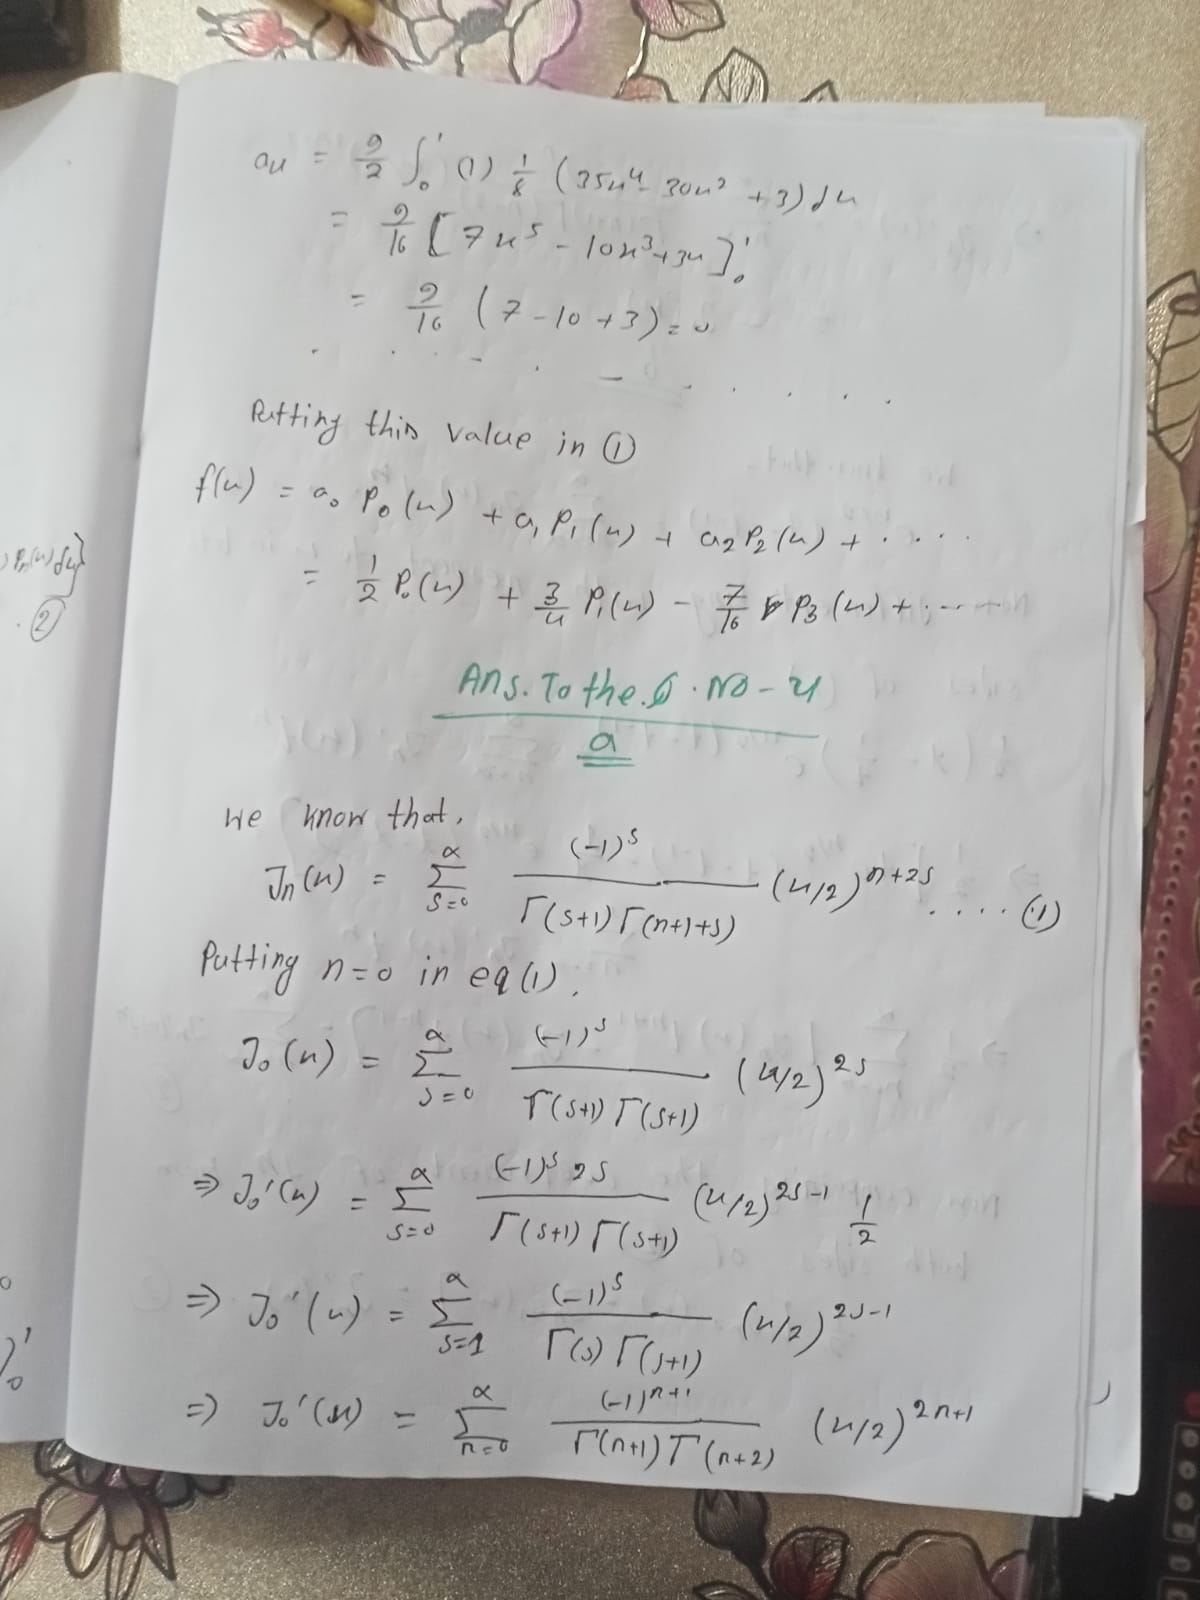 a4 = 9/2 ∫₀¹ (1) 1/8 (35x⁴ - 30x² + 3) dx
= 9/16 [7x⁵ - 10x³ + 3x]₀¹
= 9/16 (7 - 10 + 3) = 0
. . . . . . . . .
Putting this value in ①
f(x) = a₀ P₀(x) + a₁ P₁(x) + a₂ P₂(x) + . . . .
= 1/2 P₀(x) + 3/4 P₁(x) - 7/16 P₃(x) + . . . .
) Pₙ(x) dx}
. ②
Ans. To the. Q. No - 4
a
We know that,
Jₙ(x) = ∑_{s=0}^{α} (-1)ˢ / Γ(s+1) Γ(n+1+s) (x/2)ⁿ⁺²ˢ . . . . (1)
Putting n=0 in eq (1).
J₀(x) = ∑_{s=0}^{α} (-1)ˢ / Γ(s+1) Γ(s+1) (x/2)²ˢ
⇒ J₀'(x) = ∑_{s=0}^{α} (-1)ˢ 2s / Γ(s+1) Γ(s+1) (x/2)²ˢ⁻¹ 1/2
⇒ J₀'(x) = ∑_{s=1}^{α} (-1)ˢ / Γ(s) Γ(s+1) (x/2)²ˢ⁻¹
⇒ J₀'(x) = ∑_{n=0}^{α} (-1)ⁿ⁺¹ / Γ(n+1) Γ(n+2) (x/2)²ⁿ⁺¹